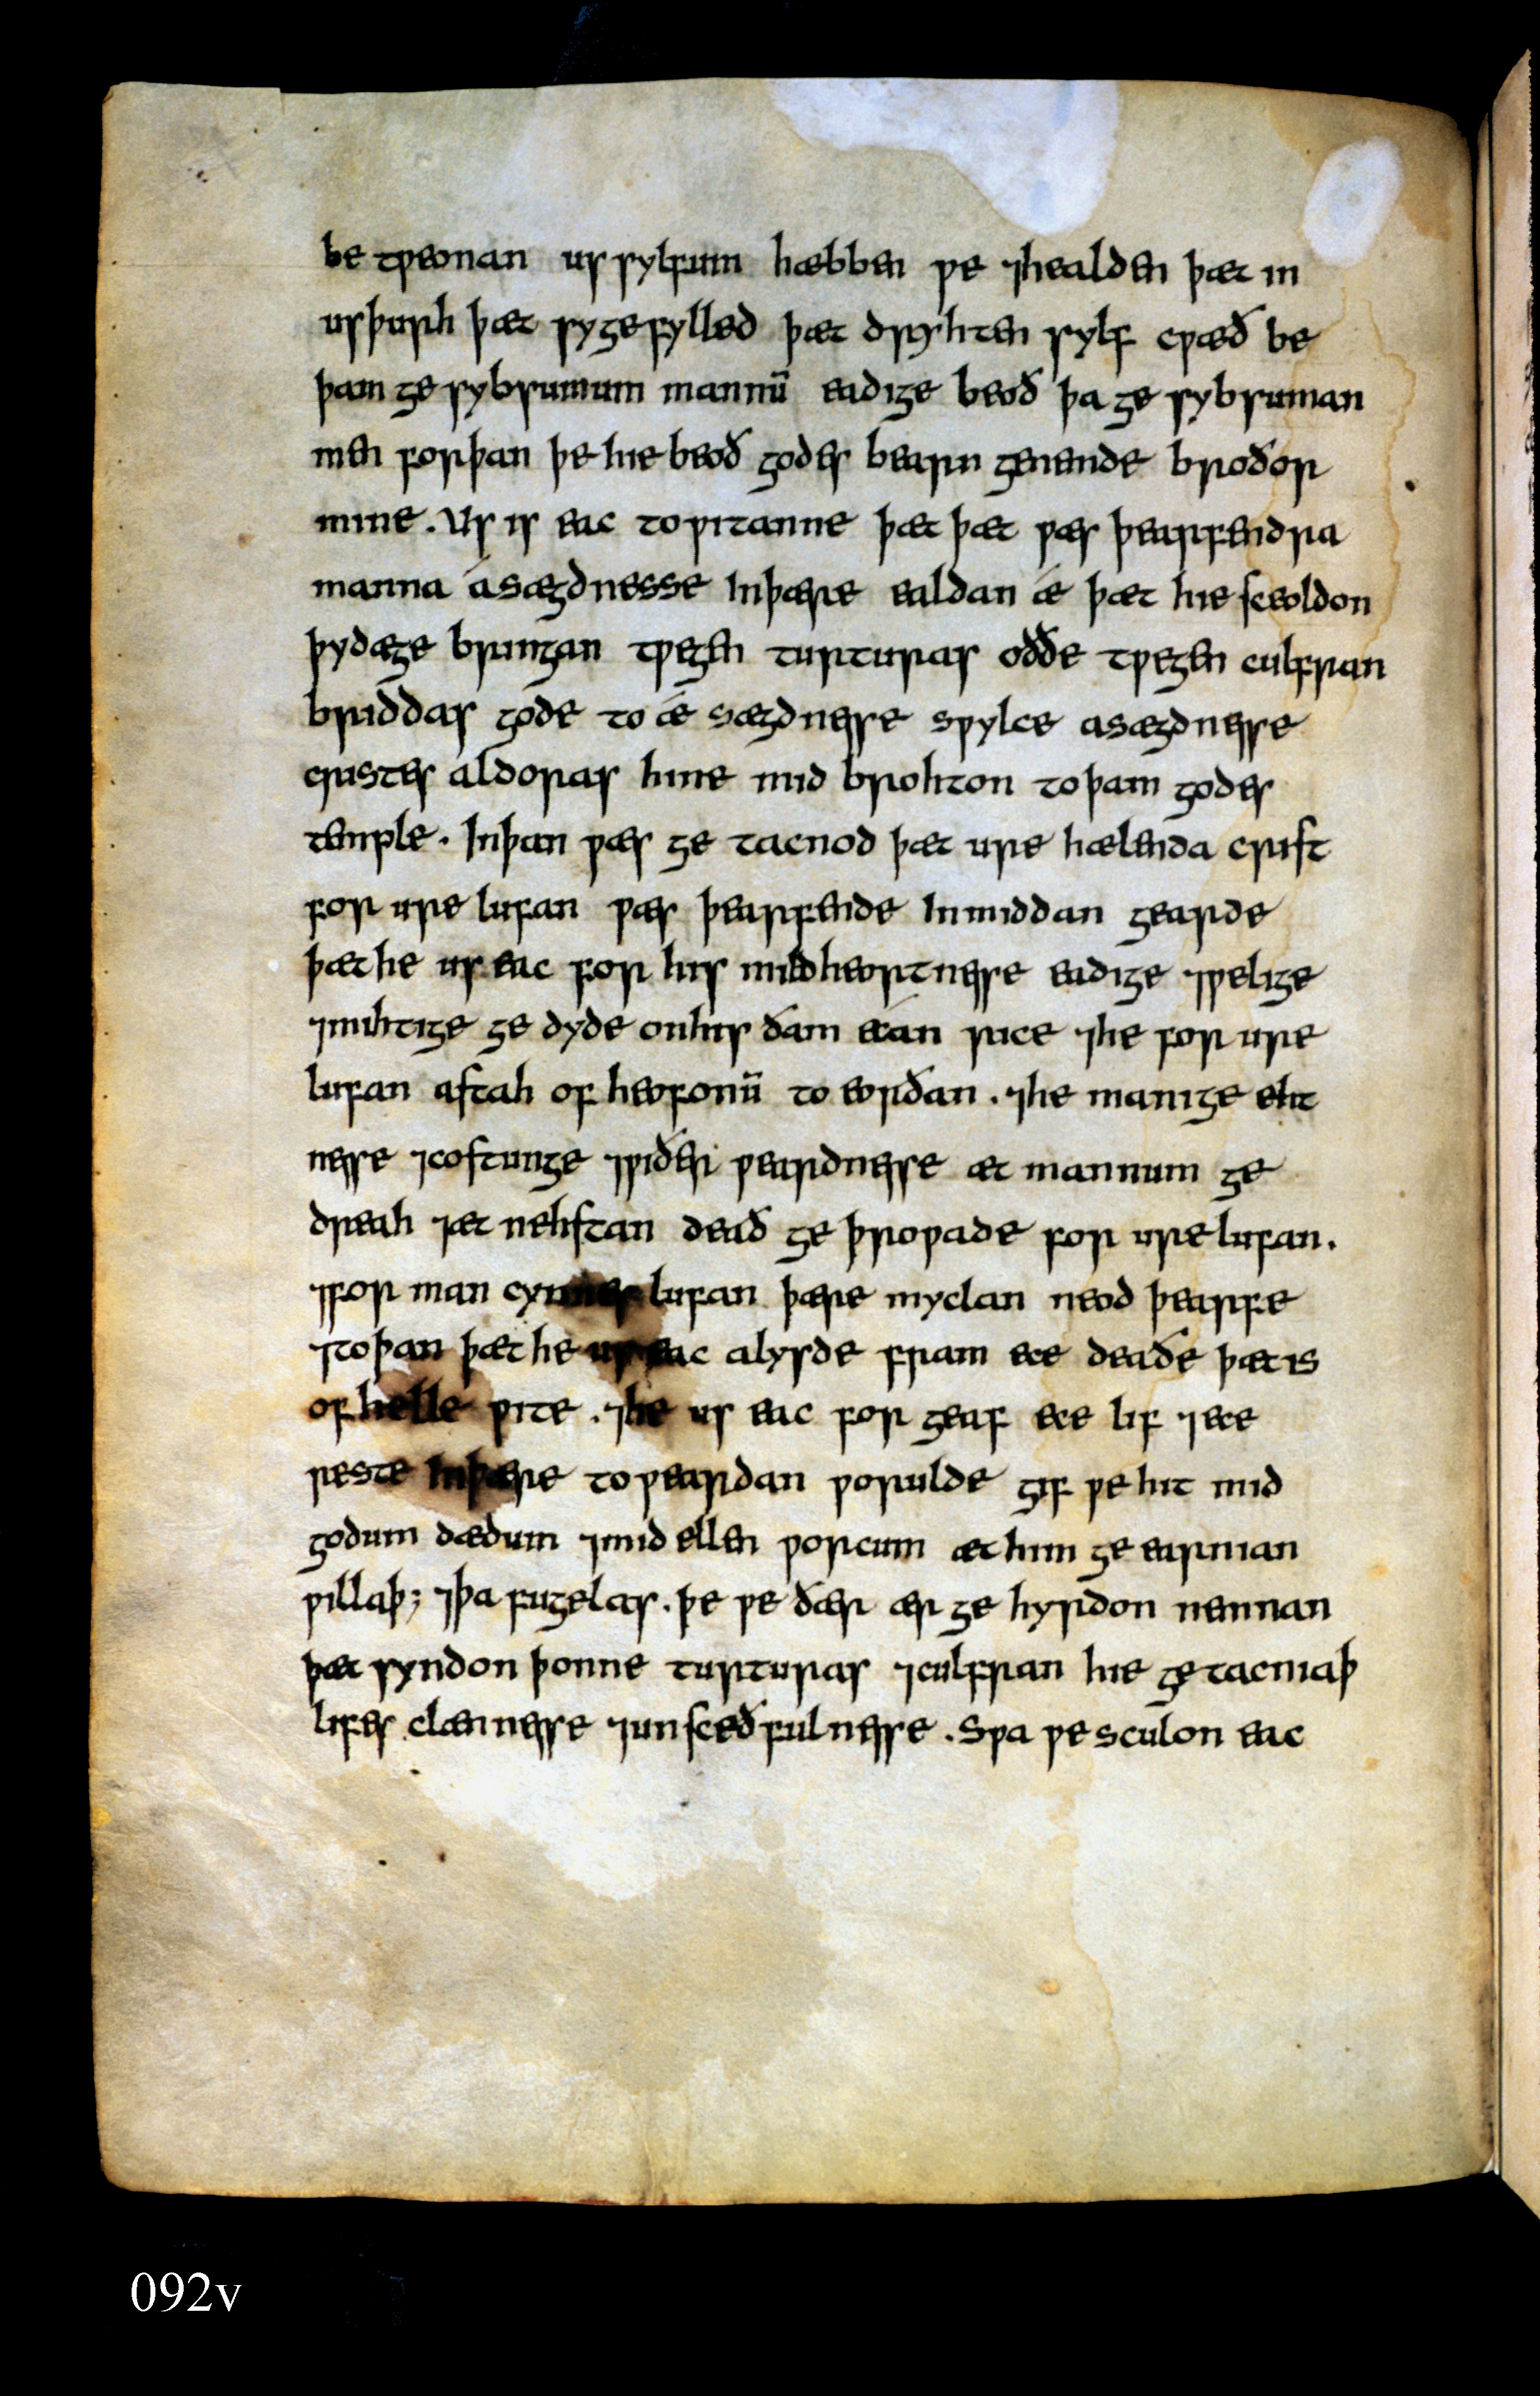 be tƿeonan us sylfum hæbben ƿe ⁊healden þæt in
usþurh þæt sygefylled þæt dryhten sylf cƿæð be
þam ge sybsumum mannū eadige beoð þa ge sybsuman
men forþan þe hie beoð godes bearn genemde broðor
mine. Us is eac to ƿitanne þæt þæt ƿæs þearfendra
manna ásægdnesse Inþære ealdan ǽ þæt hie sceoldon
þydæge bringan tƿegen turturas oððe tƿegen culfran
briddas gode to ǽ sægdnesse sƿylce asægdnesse
cristes aldoras hine mid brohton toþam godes
temple. Inþan ƿæs ge tacnod þæt ure hælenda crist
for ure lufan ƿæs þearfende In middan gearde
þæt he us eac for his mildheortnesse eadige ⁊ƿelige
⁊mihtige ge dyde onhis ðam ecán rice ⁊he for ure
lufan astah of heofonū to eorðan. ⁊he manige eht
nesse ⁊costunge ⁊ƿiðer ƿeardnesse æt mannum ge
dreah ⁊æt nehstan deað ge þroƿade for ure lufan.
⁊for man cynnes lufan þære myclan neod þearfe
⁊toþan þæt he us eac alysde fram ece deaðe þæt is
of helle ƿite. ⁊he us eac for geaf ece lif ⁊ece
reste Inþære toƿeardan ƿorulde gif ƿe hit mid
godum dædum ⁊mid ellen ƿorcum æt him ge earnian
ƿillaþ; ⁊þa fugelas. þe ƿe ðær ær ge hyrdon nemnan
þæt syndon þonne turturas ⁊culfran hie ge tacniaþ
lifes clænnesse ⁊unsceðfulnesse. Sƿa ƿe sculon eac
092v